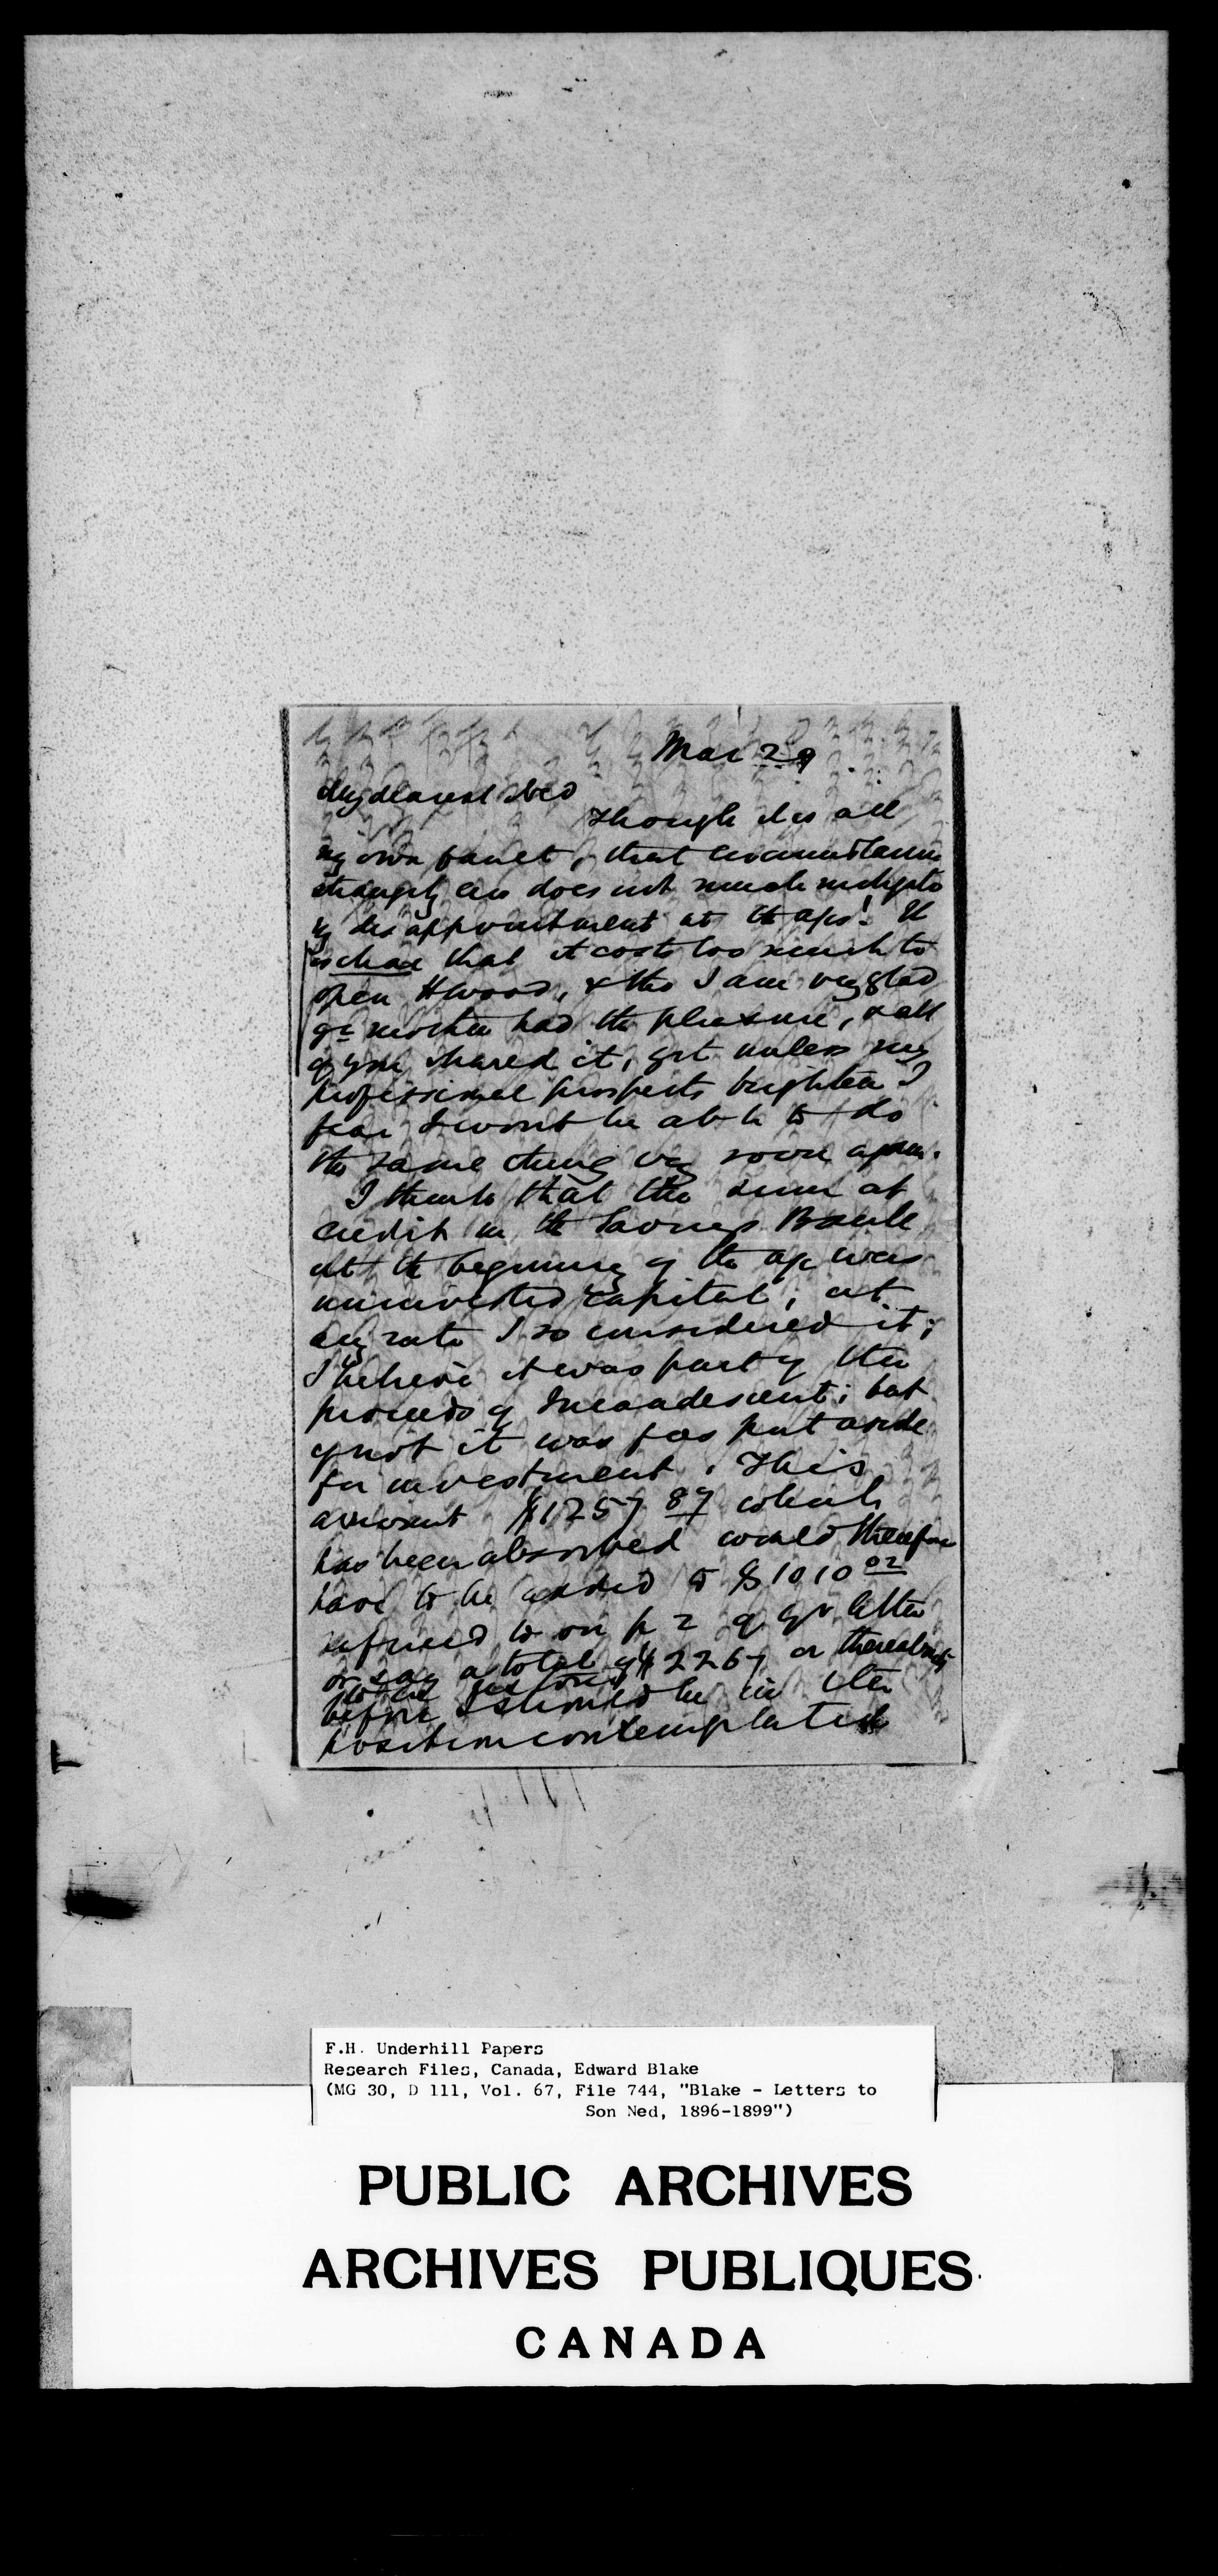 Mar 29
My dearest Ned
Though it is all
my own fault, that circumstance
strangely eno does not much mitigate
my disappointment at the a/cs! It
is clear that it costs too much to
open Hwood, & tho I am vy glad
yr mother had the pleasure, & all
of you shared it, yet unless my
professional prospects brighten I
fear I wont be able to do
the same thing vy soon again.
I think that the sum at
credit in the Savings Bank
at the beginning of the a/c was
uninvested capital; at
any rate I so considered it;
I believe it was part of the
proceeds of Incandescent; but
if not it was fees put aside
for investment. This
amount $1257 89 which
has been absorbed would therefore
have to be added to $1010 02
referred to on p 2 of yr letter
or say a total of $2267 or thereabouts
to be restored
before I should be in the
position contemplated
F.H. Underhill Papers
Research Files, Canada, Edward Blake
(MG 30, D 111, Vol. 67, File 744, "Blake - Letters to
Son Ned, 1896-1899")
PUBLIC ARCHIVES
ARCHIVES PUBLIQUES
CANADA